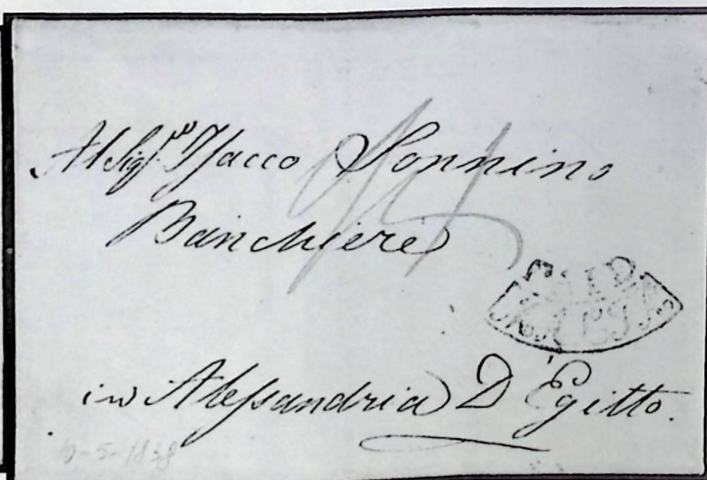 Al Sig.ʳᵉ Isacco Sonnino
Banchiere
in Alessandria D'Egitto.